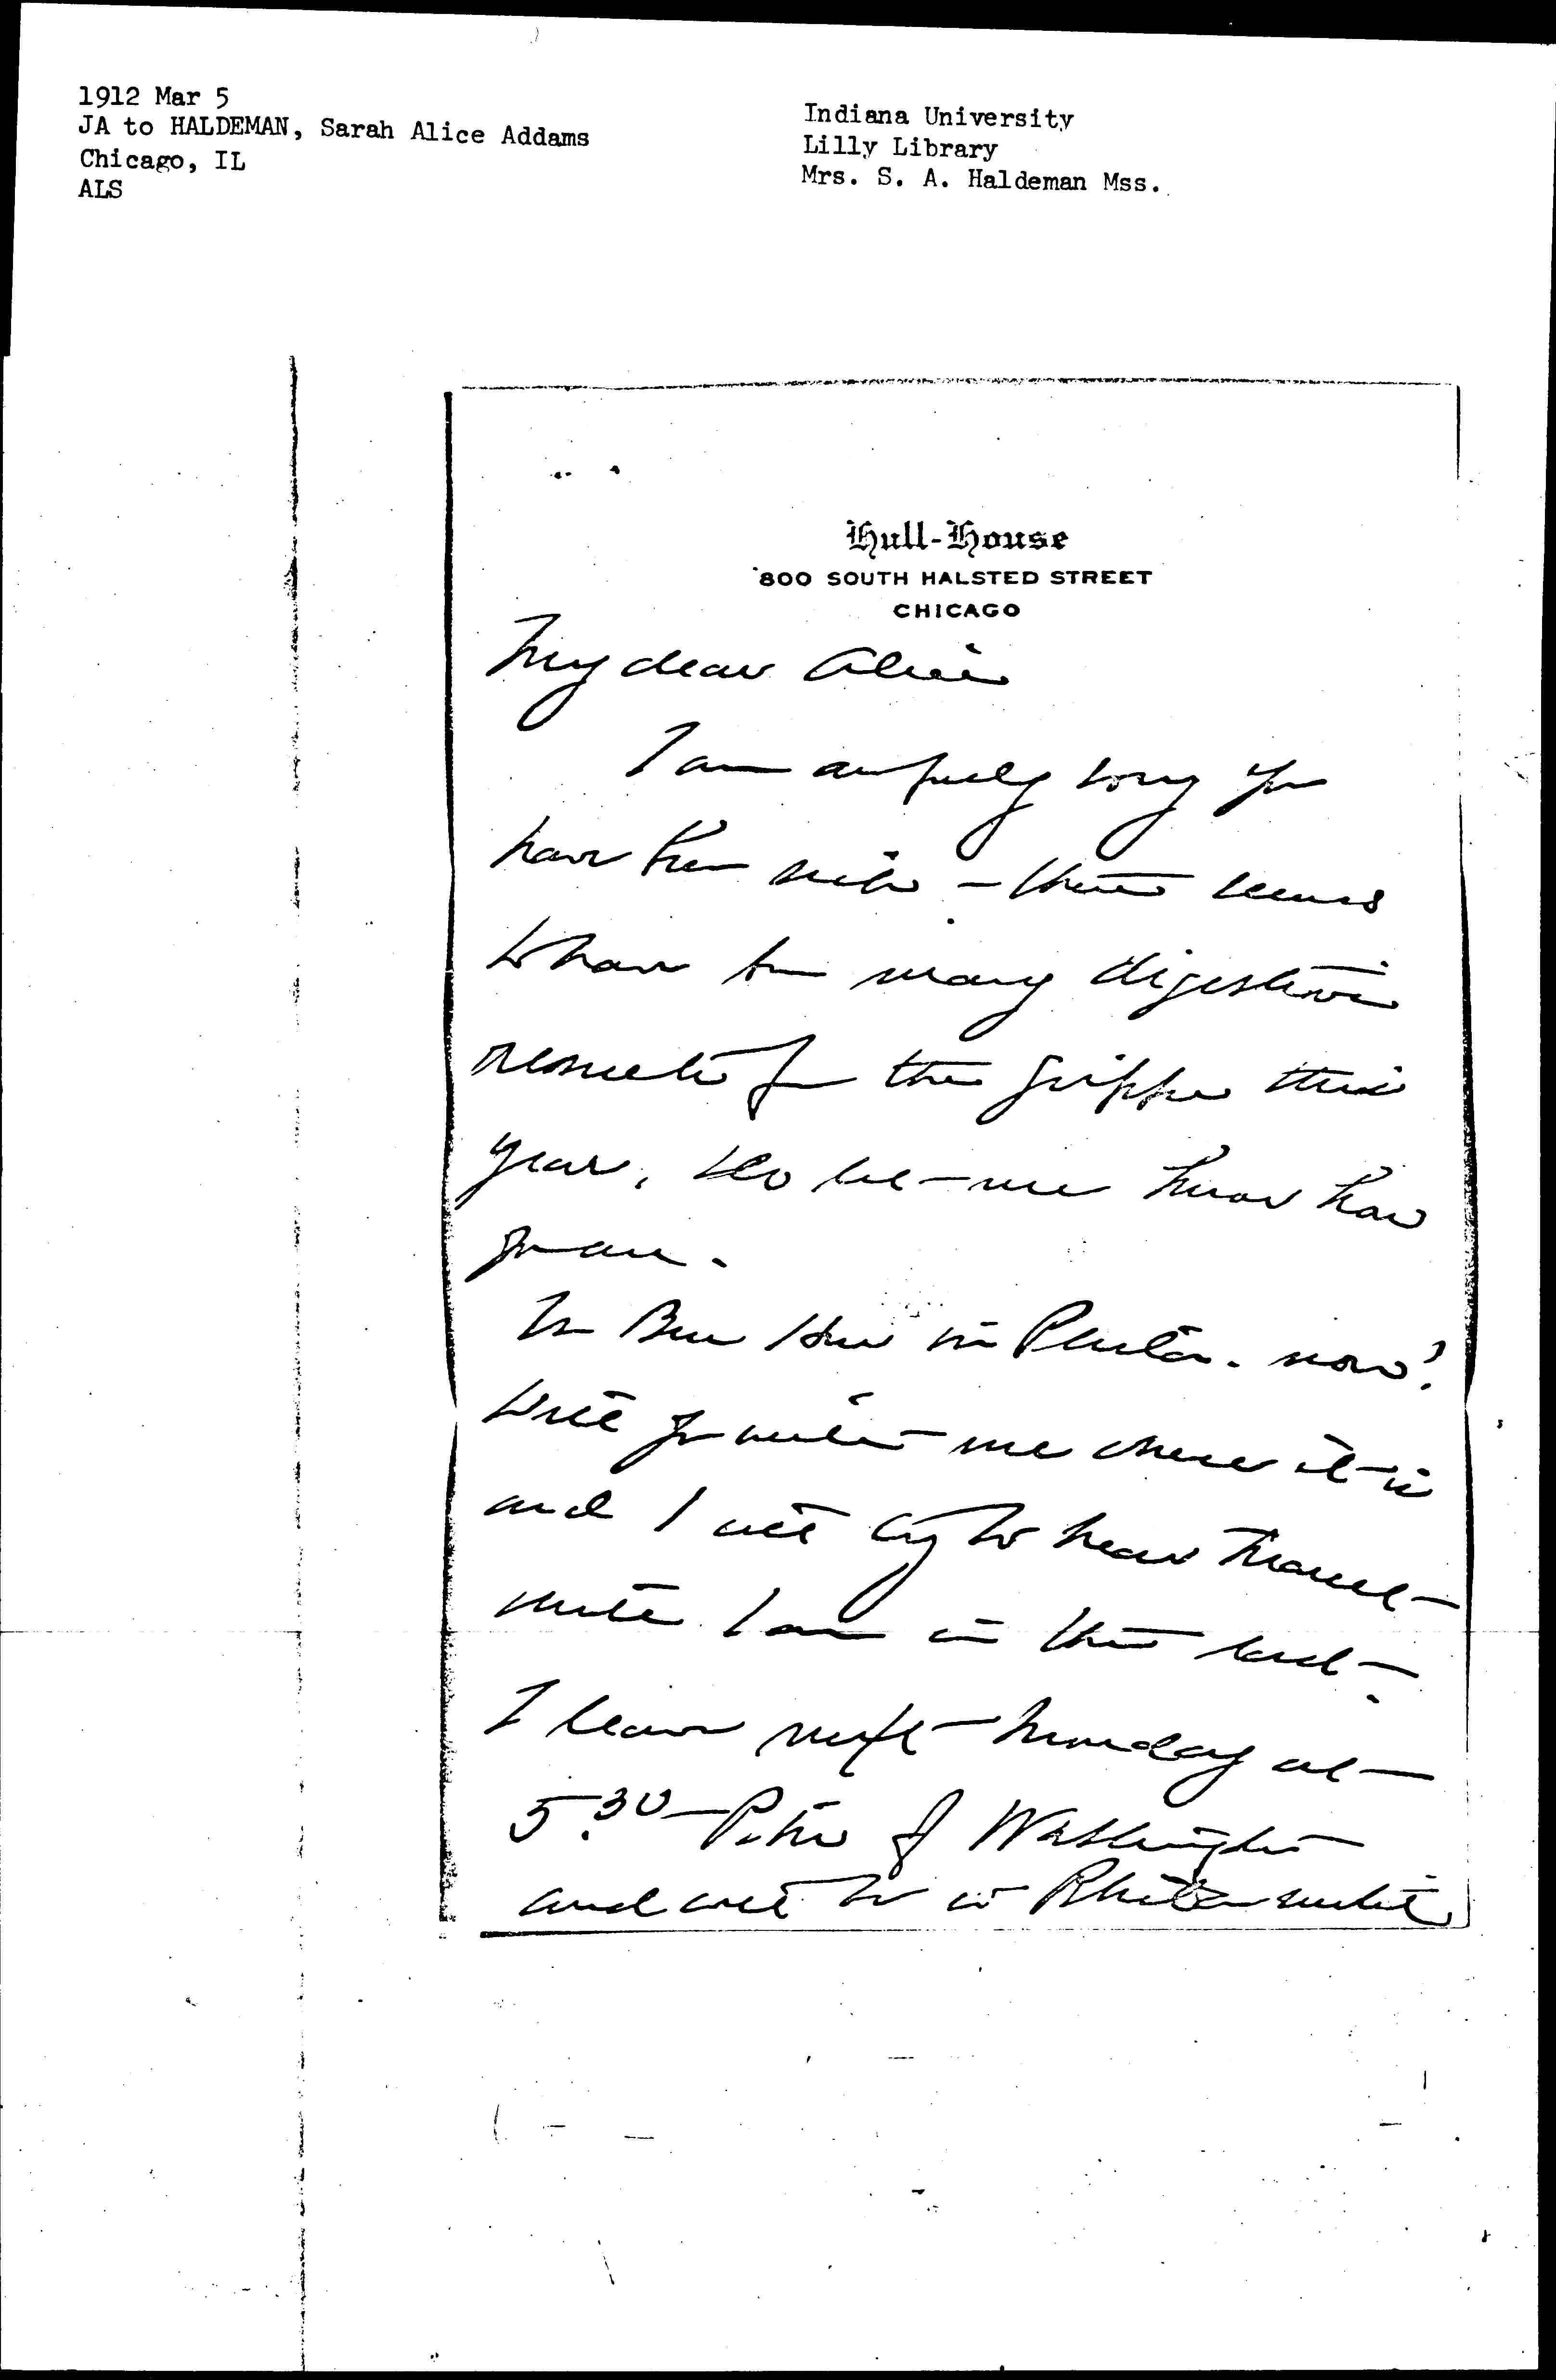 1912 Mar 5
JA to HALDEMAN, Sarah Alice Addams
Chicago, IL
ALS
Indiana University
Lilly Library
Mrs. S. A. Haldeman Mss.
Hull-House
800 SOUTH HALSTED STREET
CHICAGO
My dear Alice
I am awfully sorry you
have been sick - there seems
to have been many digestive
results from the grippe this
year, do let me know how
you are.
Is Ben Hur in Phila. now?
Will you write me where it is
and I will try to hear Marcet
while I am in the east.
I leave next Monday at
5.30 P.M. for Washington
and will be in Phila